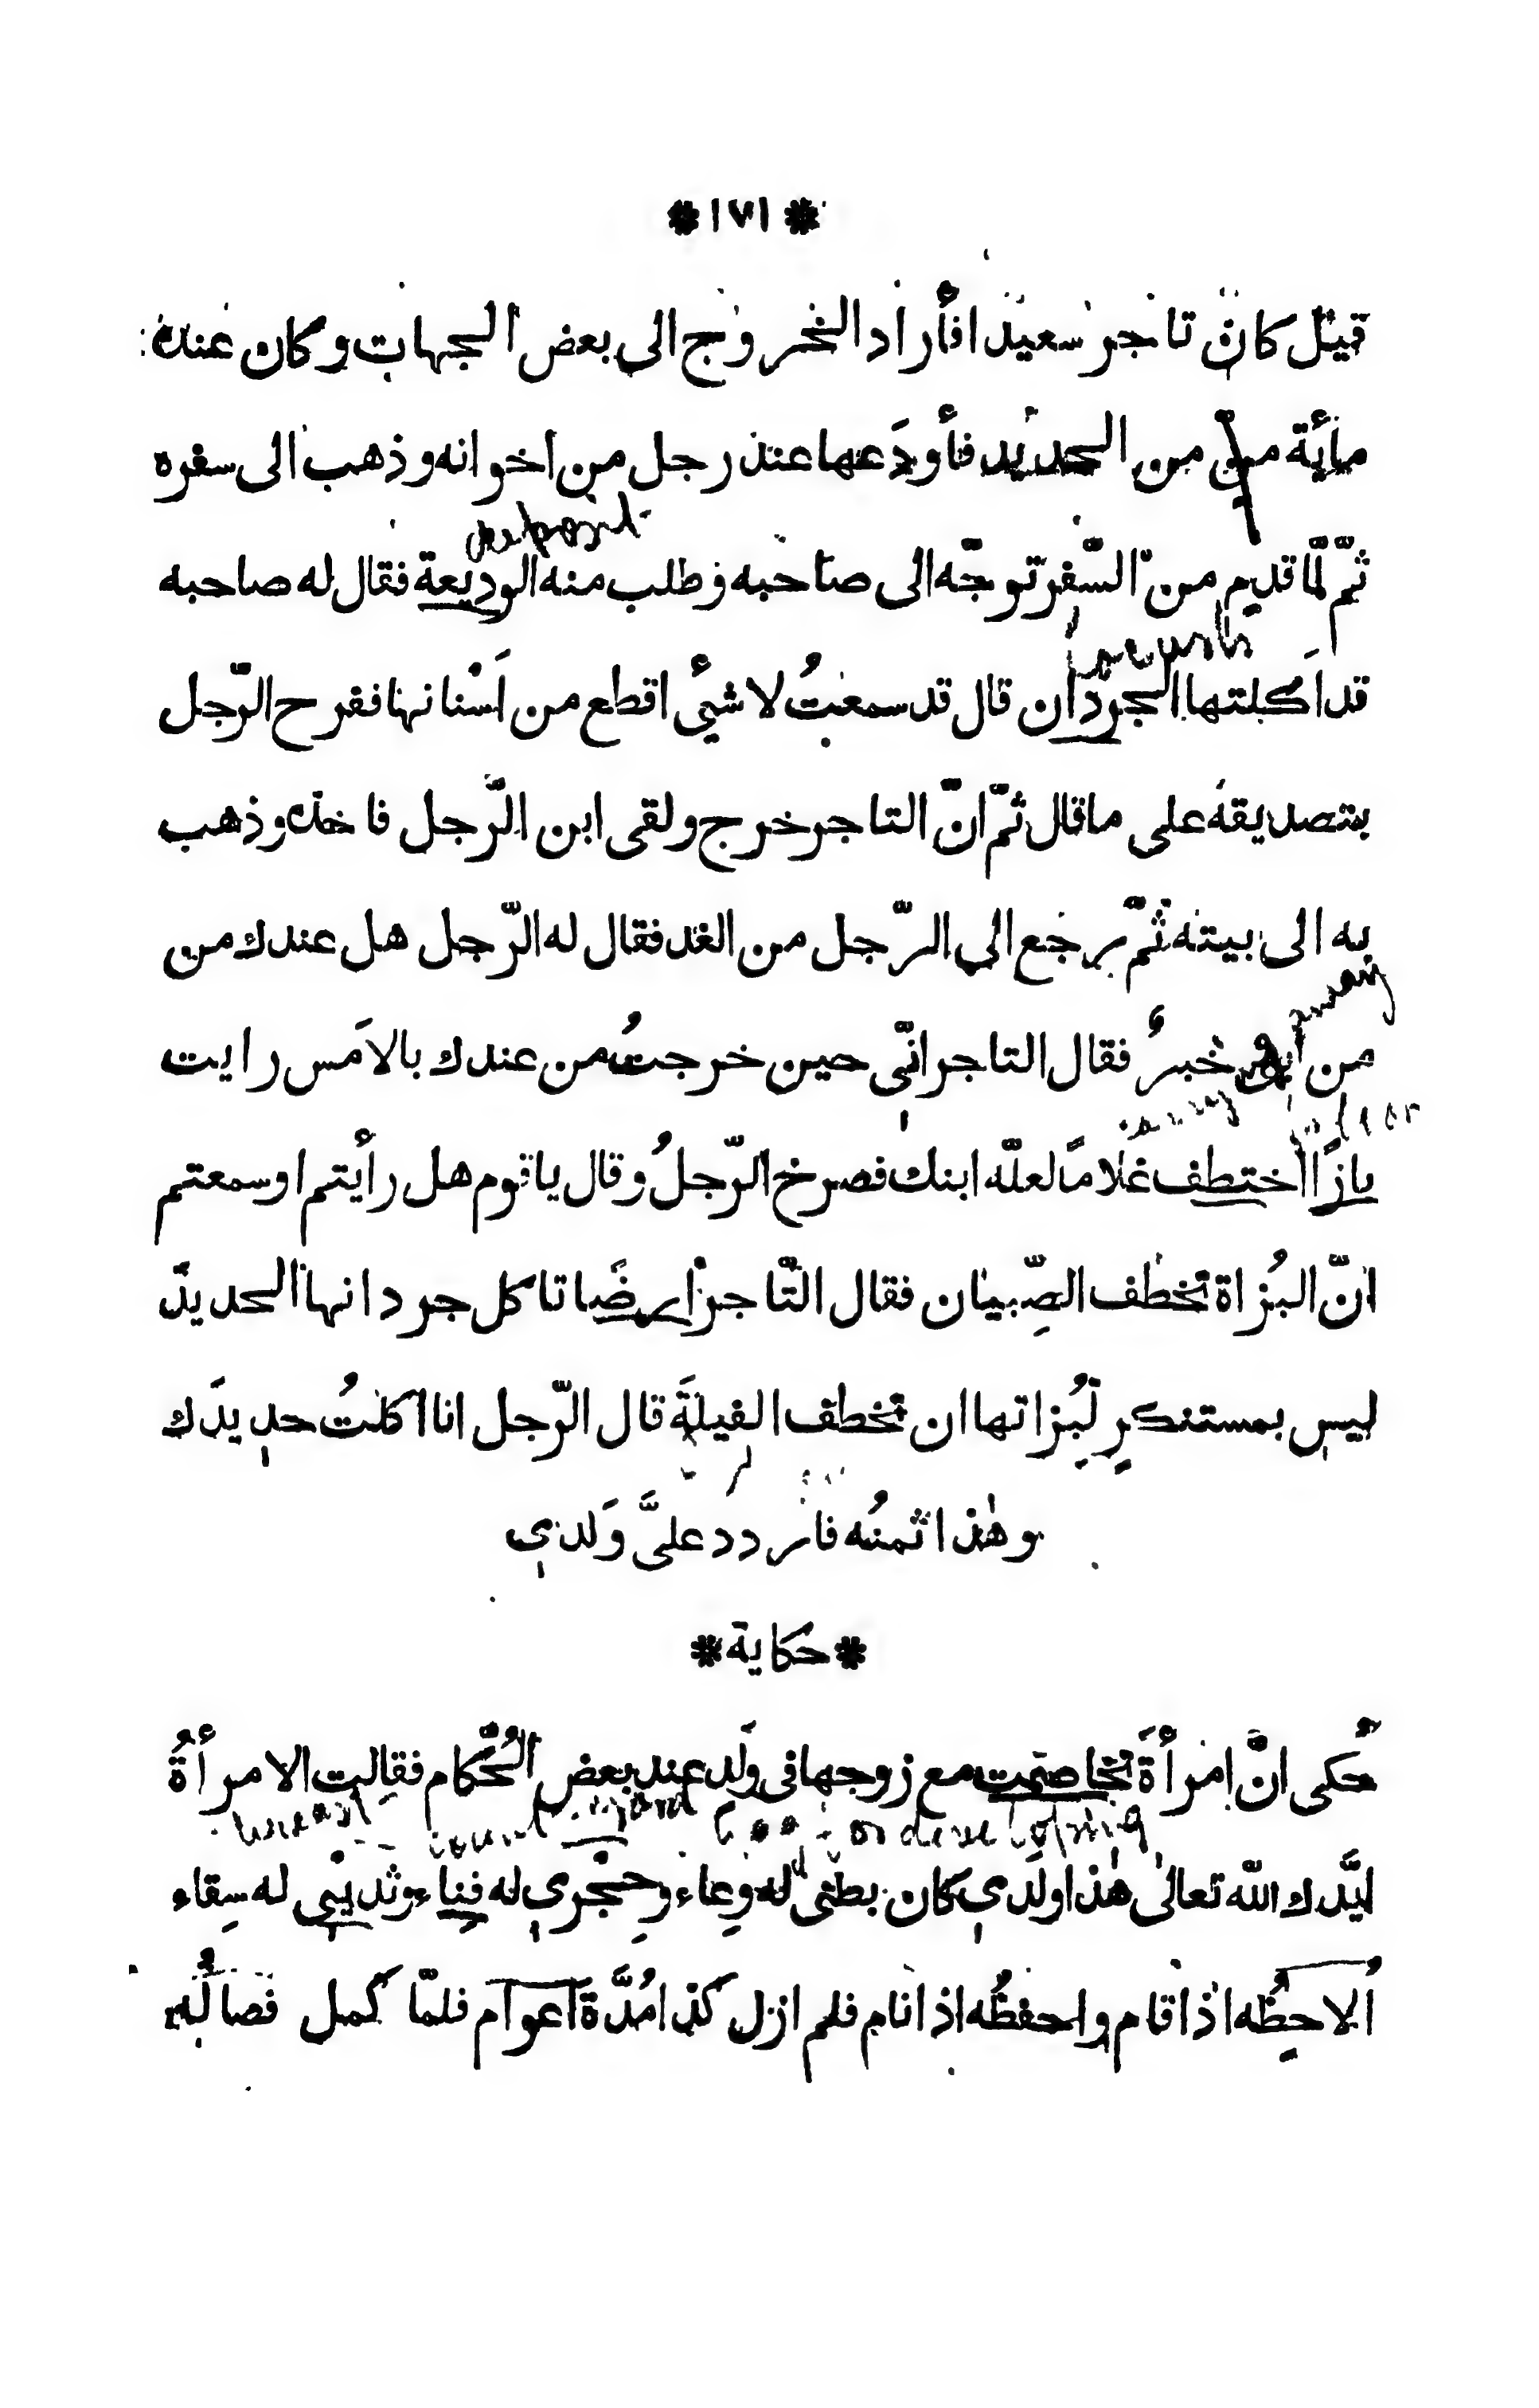 * ١٧١ *
قيل كان تاجر سعيدا فأراد الخروج الى بعض الجهات وكان عنده
مأية من من الحديد فأودَعها عند رجل من اخوانه وذهب الى سفره
deposit
ثمّ لمّا قدم من السّفر توجّه الى صاحبه وطلب منه الوديعة فقال له صاحبه
قد اَكلتها الجرذان قال قد سمعتُ لا شيئ اقطع من اَسْنانها ففرح الرّجل
بتصديقه على ما قال ثمّ انّ التاجر خرج ولقى ابن الرّجل فاخذه وذهب
به الى بيته ثمّ رجع الى الرّجل من الغد فقال له الرّجل هل عندك من
من خبرٌ فقال التاجر انّى حين خرجتُ من عندك بالاَمس رايت
بازًا اختطف غلامًا لعلّه ابنك فصرخ الرّجلُ وقال يا قوم هل رأيتم او سمعتم
انّ البُزاة تخطف الصِّبيان فقال التّاجر ارضًا تاكل جرذانها الحديد
ليس بمستنكرٍ لِبُزاتها ان تخطف الفيلةَ قال الرّجل انا اكلتُ حديدَك
وهٰذا ثمنُه فاردد علىَّ وَلدي
* حكاية *
حُكى انّ امرأةً تخاصمت مع زوجها فى ولَد عند بعض الحُكّام فقالت الامرأةُ
breast
ايَّدك الله تعالىٰ هٰذا ولَدي كان بطنى له وِعاء وحِجْري له فِناء وثديىْ له سِقاء
اُلاحِظُه اذا قام واحفظُه اذا نام فلم ازل كذا مُدَّة اَعوام فلمّا كمل فصالُه